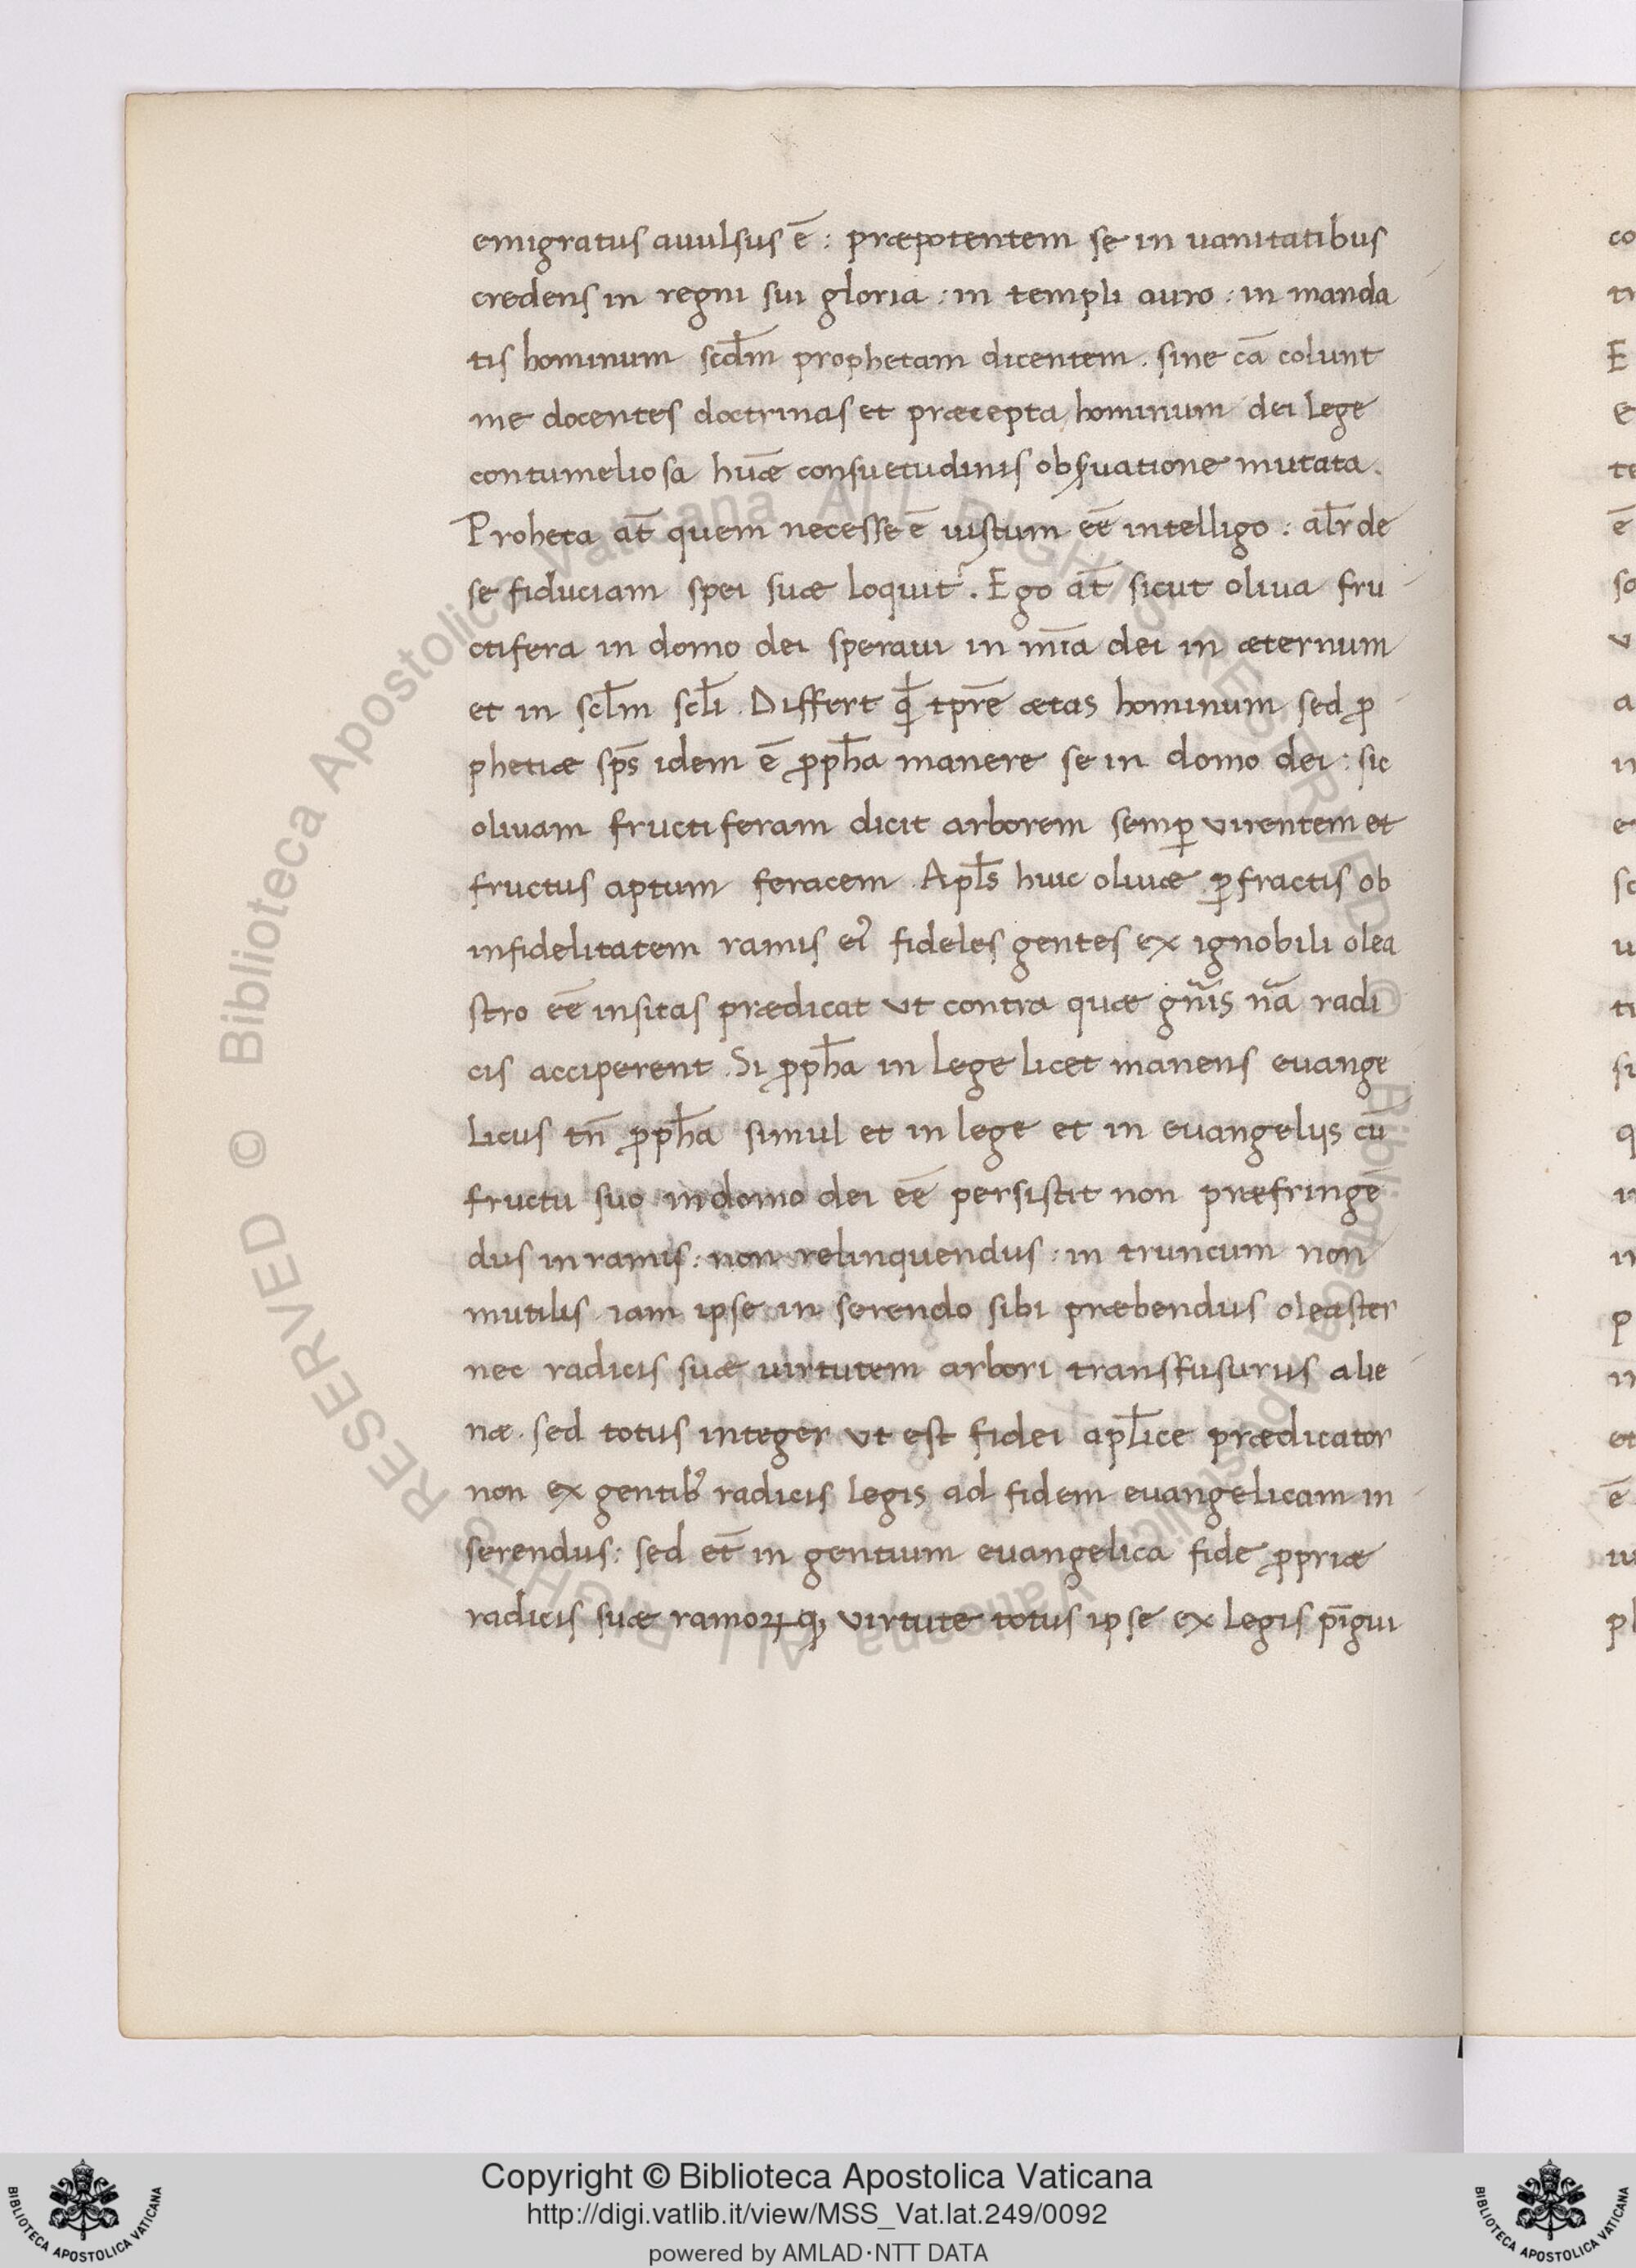 emigratus auulsus ē : præpotentem se in uanitatibus
credens in regni sui gloria : in templi auro : in manda
tis hominum scd̄m prophetam dicentem . sine cā colunt
me docentes doctrinas et præcepta hominum dei lege
contumeliosa hūæ consuetudinis obs̄uatione mutata .
Proheta at̄ quem necesse ē iustum eē intelligo : al̄r de
se fiduciam spei suæ loquit᷑ . Ego at̄ sicut oliua fru
ctifera in domo dei speraui in mīa dei in æternum
et in scl̄m scl̄i . Differt tp̄re ætas hominum sed ꝓ
phetiæ sp̄s idem ē ꝓph̄a manere se in domo dei : sic
oliuam fructiferam dicit arborem semꝑ virentem et
fructus aptum feracem . Apl̄s huic oliuæ ꝑfractis ob
infidelitatem ramis eiꝰ fideles gentes ex ignobili olea
stro eē insitas prædicat ut contra quæ gn̄is nā radi
cis acciperent . Si ꝓph̄a in lege licet manens euange
licus tn̄ ꝓph̄a simul et in lege et in euangeliis cū
fructu suo in domo dei eē persistit non præfringē
dus in ramis : non relinquendus : in truncum non
mutilis iam ipse in serendo sibi præbendus oleaster
nec radicis suæ uirtutem arbori transfusurus alie
næ . sed totus integer ut est fidei apl̄ice prædicator
non ex gentibꝰ radicis legis ad fidem euangelicam in
serendus : sed et̄ in gentium euangelica fide ꝓpriæ
radicis suæ ramoꝝqꝫ virtute totus ipse ex legis pīgui
co
E
e
te
ē
so
v
a
e
sc
u
ti
si
q
p
et
ē
pl
© Biblioteca Apostolica Vaticana ALL RIGHTS RESERVED © Biblioteca Apostolica Vaticana ALL RIGHTS RESERVED
Copyright © Biblioteca Apostolica Vaticana
http://digi.vatlib.it/view/MSS_Vat.lat.249/0092
powered by AMLAD·NTT DATA
BIBLIOTECA APOSTOLICA VATICANA
BIBLIOTECA APOSTOLICA VATICANA